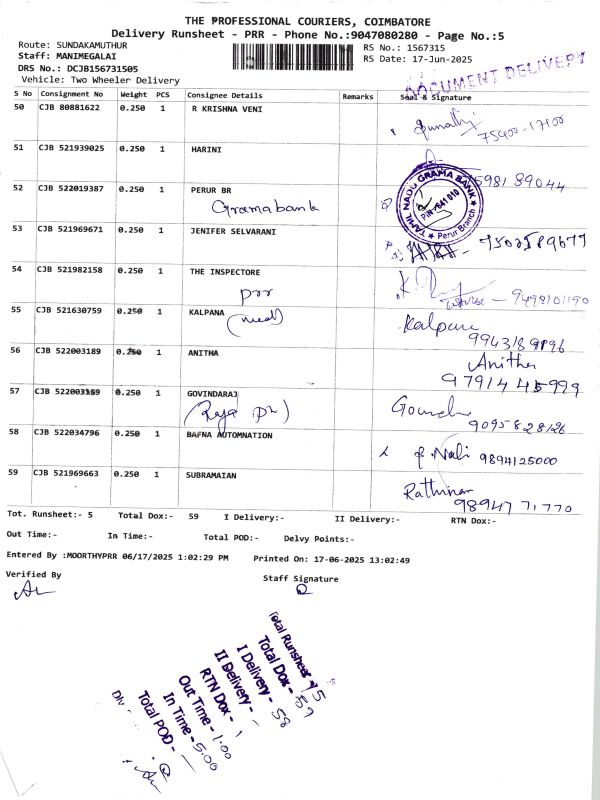 THE PROFESSIONAL COURIERS, COIMBATORE
Delivery Runsheet - PRR - Phone No.:9047080280 - Page No.:5
Route: SUNDAKAMUTHUR
RS No.: 1567315
Staff: MANIMEGALAI
RS Date: 17-Jun-2025
DRS No.: DCJB156731505
Vehicle: Two Wheeler Delivery
DOCUMENT DELIVERY
S No Consignment No Weight PCS Consignee Details Remarks Seal & Signature
50 CJB 80881622 0.250 1 R KRISHNA VENI
75400-17100
51 CJB 521939025 0.250 1 HARINI
598189044
52 CJB 522019387 0.250 1 PERUR BR
Gramabank
TAMIL NADU GRAMA BANK
PIN-641 010
Perur Branch
53 CJB 521969671 0.250 1 JENIFER SELVARANI
54 CJB 521982158 0.250 1 THE INSPECTORE
prr
9498101190
55 CJB 521630759 0.250 1 KALPANA
(need)
Kalpana
9943189896
56 CJB 522003189 0.250 1 ANITHA
Anitha
9791445999
57 CJB 522003159 0.250 1 GOVINDARAJ
(Raja pr)
9095828126
58 CJB 522034796 0.250 1 BAFNA AUTOMNATION
9894125000
59 CJB 521969663 0.250 1 SUBRAMAIAN
9894771770
Tot. Runsheet:- 5 Total Dox:- 59 I Delivery:- II Delivery:- RTN Dox:-
Out Time:- In Time:- Total POD:- Delvy Points:-
Entered By :MOORTHYPRR 06/17/2025 1:02:29 PM Printed On: 17-06-2025 13:02:49
Verified By
Staff Signature
Total Runsheet - 5
Total Dox - 59
I Delivery - 58
II Delivery - 1
RTN Dox - 1
Out Time - 1.00
In Time - 5.00
Total POD -